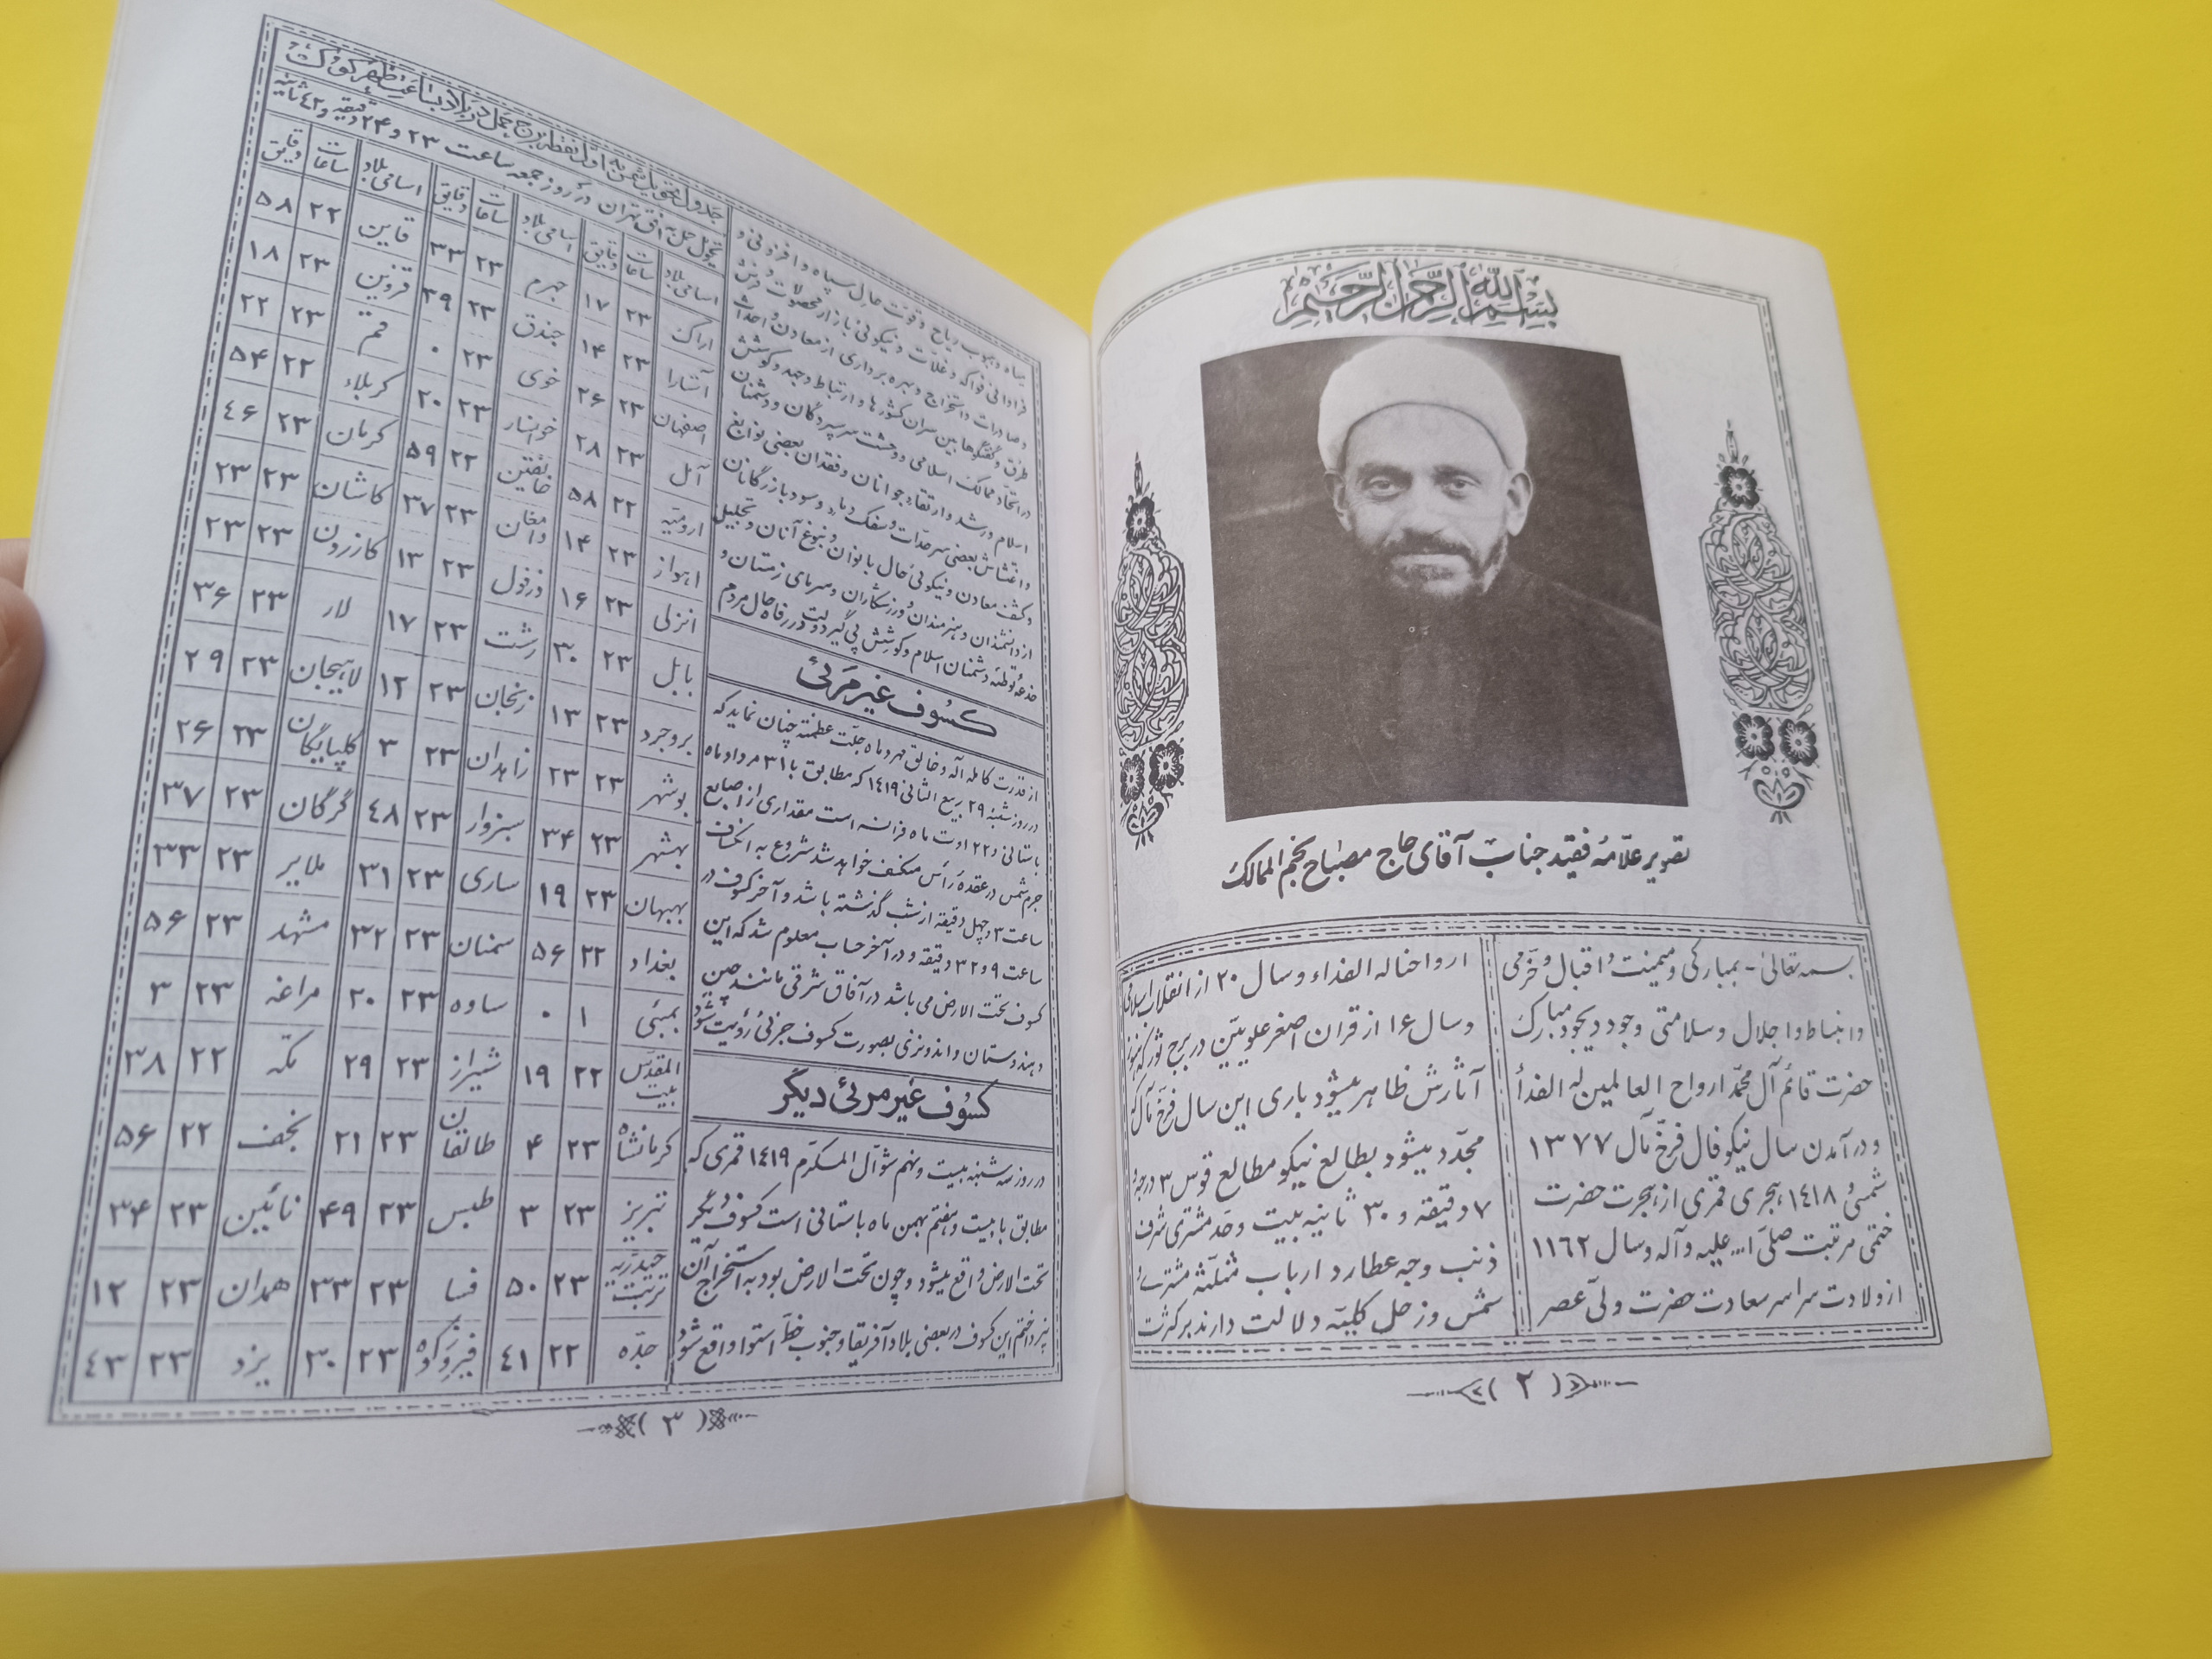 بسم الله الرحمن الرحیم
تصویر علّامه فقید جناب آقای حاج مصباح نجم الممالک
بسمه تعالی - بمبارکی و میمنت و اقبال و خرّمی
و انبساط و اجلال و سلامتی وجود ذیجود مبارک
حضرت قائم آل محمّد ارواح العالمین له الفدأ
و در آمدن سال نیکو فال فرخ مآل ۱۳۷۷
شمسی و ۱٤۱۸ هجری قمری از هجرت حضرت
ختمی مرتبت صلی ا... علیه و آله و سال ۱۱٦۲
از ولادت سراسر سعادت حضرت ولیّ عصر
ارواحنا له الفداء و سال ۲۰ از انقلاب اسلامی
و سال ۱٤ از قران اصغر علویین در برج ثور که هنوز
آثارش ظاهر میشود باری این سال فرخ مآل که
مجدّد میشود بطالع نیکو مطالع قوس ۳ درجه و
۷ دقیقه و ۳۰ ثانیه بیت و حد مشتری شرف
ذنب وجه عطارد ارباب مثلثه مشتری و
شمس و زحل کلیّه دلالت دارند بر کثرت
(۲)
میاه و هبوب ریاح و قوت حال سپاه و افزونی و
فراوانی فواکه و غلات و نیکوئی بازار محصولات و فرش
و صادرات و استخراج و بهره برداری از معادن و احداث
طرق و گفتگوها بین سران کشورها و ارتباط و جد و کوشش
در اتحاد ممالک اسلامی و وحشت سرسپردگان و دشمنان
اسلام و رشد و ارتقاء جوانان و فقدان بعضی نوابغ
و اغتشاش بعضی سرحدات و سفک دماء و سود بازرگانان
و کشف معادن و نیکوئی حال بانوان و نبوغ آنان و تجلیل
از دانشمندان و هنرمندان و ورزشکاران و سرمای زمستان و
خدعه و توطئه دشمنان اسلام و کوشش پی گیر دولت در رفاه حال مردم
کسوف غیر مرئی
از قدرت کامله اله و خالق مهر و ماه جلّت عظمته چنان نماید که
در روز شنبه ۲۹ ربیع الثانی ۱٤۱۹ که مطابق با ۳۱ مرداد ماه
باستانی و ۲۲ اوت ماه فرانسه است مقداری از اصابع
جرم شمس در عقده رأس منکسف خواهد شد شروع به انکساف
ساعت ۳ و چهل دقیقه از شب گذشته باشد و آخر کسوف در
ساعت ۹ و ۳۲ دقیقه و در آخر حساب معلوم شد که این
کسوف تحت الارض می باشد در آفاق شرقی مانند چین
و هندوستان و اندونزی بصورت کسوف جزئی رؤیت شود
کسوف غیر مرئی دیگر
در روز سه شنبه بیست و نهم شوّال المکرّم ۱٤۱۹ قمری که
مطابق با بیست و هفتم بهمن ماه باستانی است کسوف دیگر
تحت الارض واقع میشود و چون تحت الارض بود به استخراج آن
نپرداختم این کسوف در بعضی بلاد آفریقا و جنوب خطّ استوا واقع شود
جدول تحویل شمس به اول نقطه برج حمل در بلاد بساعت ظهر کوک
تحویل حمل به افق تهران در روز جمعه ساعت ۲۳ و ۲۴ دقیقه و ٤۲ ثانیه
اسامی بلاد ساعات دقایق اسامی بلاد ساعات دقایق اسامی بلاد ساعات دقایق
اراک ۲۳ ۱۷ جهرم ۲۳ ۳۳ قاین ۲۲ ۵۸
آستارا ۲۳ ۱۴ جندق ۲۳ ۳۹ قزوین ۲۳ ۱۸
اصفهان ۲۳ ۲۶ خوی ۲۳ ۰ قم ۲۳ ۲۲
آمل ۲۳ ۲۸ خوانسار ۲۳ ۲۰ کربلاء ۲۲ ۵۴
ارومیّه ۲۲ ۵۸ خانقین ۲۲ ۵۹ کرمان ۲۳ ٤۶
اهواز ۲۳ ۱۴ دامغان ۲۳ ۳۷ کاشان ۲۳ ۲۳
انزلی ۲۳ ۱۶ دزفول ۲۳ ۱۳ کازرون ۲۳ ۲۳
بابل ۲۳ ۳۰ رشت ۲۳ ۱۷ لار ۲۳ ۳۶
بروجرد ۲۳ ۱۳ زنجان ۲۳ ۱۲ لاهیجان ۲۳ ۲۹
بوشهر ۲۳ ۲۳ زاهدان ۲۳ ۳ گلپایگان ۲۳ ۲۶
بهشهر ۲۳ ۳۴ سبزوار ۲۳ ٤۸ گرگان ۲۳ ۳۷
بهبهان ۲۳ ۱۹ ساری ۲۳ ۳۱ ملایر ۲۳ ۳۳
بغداد ۲۲ ۵۶ سمنان ۲۳ ۳۲ مشهد ۲۳ ۵۶
بمبئی ۱ ۰ ساوه ۲۳ ۲۰ مراغه ۲۳ ۳
بیت المقدّس ۲۲ ۱۹ شیراز ۲۳ ۲۹ مکّه ۲۲ ۳۸
کرمانشاه ۲۳ ۴ طالقان ۲۳ ۲۱ نجف ۲۲ ۵۶
تبریز ۲۳ ۳ طبس ۲۳ ۴۹ نایین ۲۳ ۳۴
تربت حیدریه ۲۳ ۵۰ فسا ۲۳ ۳۳ همدان ۲۳ ۱۲
جدّه ۲۲ ٤۱ فیروزکوه ۲۳ ۳۰ یزد ۲۳ ٤۳
(۳)